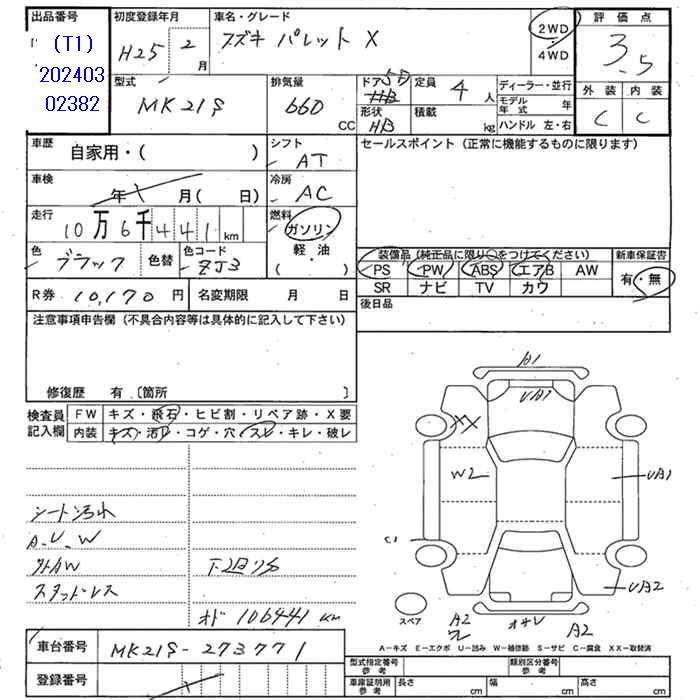 出品番号
(T1)
202403
02382
初度登録年月
H25 2月
車名・グレード
スズキ パレット X
2WD
4WD
評価点
3.5
外装 内装
C C
型式
MK21S
排気量
660 CC
ドア 5D
形状
HB
定員 4人
積載 kg
ディーラー・並行
モデル年式 年
ハンドル 左・右
車歴
自家用・( )
シフト
AT
セールスポイント (正常に機能するものに限ります)
車検
年 月(日)
冷房
AC
走行
10万6千441km
燃料
ガソリン
軽・油
( )
色
ブラック
色替
色コード
ZJ3
装備品 (純正品に限り○をつけてください)
PS PW ABS エアB AW
SR ナビ TV カワ
新車保証書
有・無
R券 10,170円
名変期限 月 日
後日品
注意事項申告欄 (不具合内容等は具体的に記入して下さい)
修復歴 有 〔箇所 〕
検査員記入欄
FW キズ・飛石・ヒビ割・リペア跡・X要
内装 キズ・汚レ・コゲ・穴・スレ・キレ・破レ
シート汚れ
A.U.W
スタッドレス
下廻リサビ
オド 106441km
A1
UA1
XX
W2
UA1
C1
UA2
A2
A2
スペア
A−キズ E−エクボ U−凹み W−補修跡 S−サビ C−腐食 XX−取替済
車台番号
MK21S-273771
登録番号
型式指定番号
参考
類別区分番号
参考
車庫証明用
参考
長さ cm
幅 cm
高さ cm